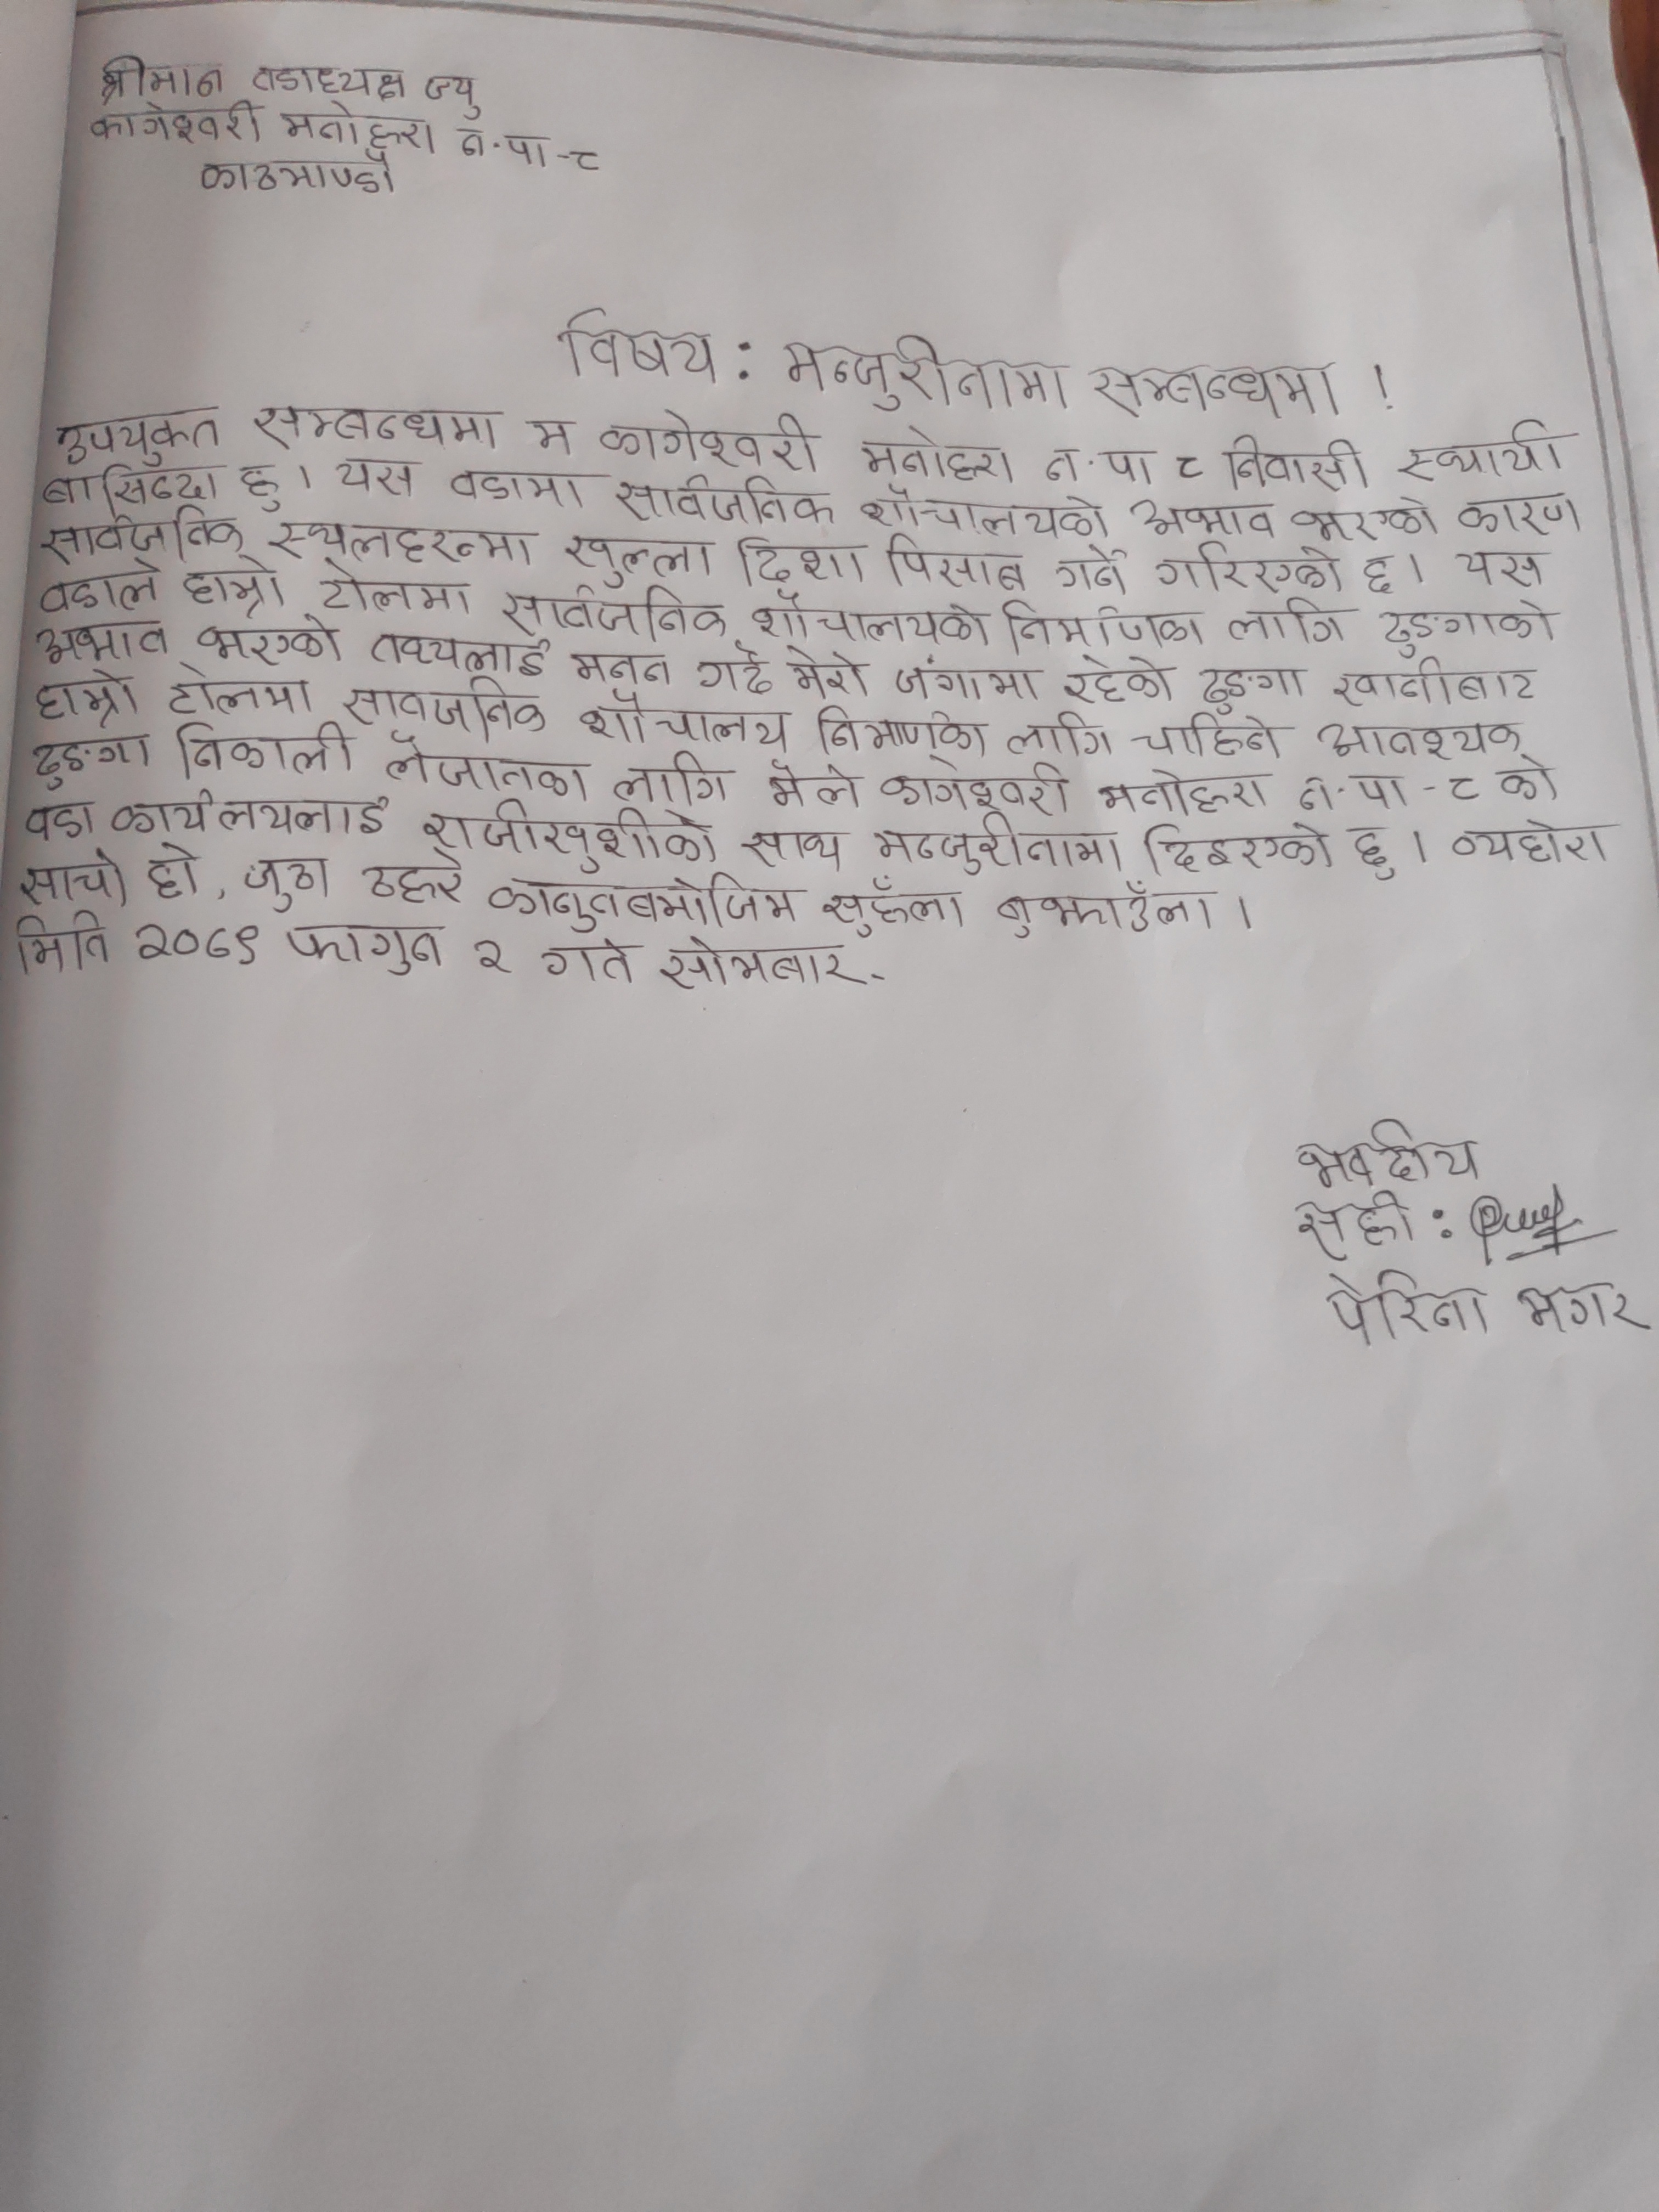 श्रीमान वडाध्यक्ष ज्यु
कागेश्वरी मनोहरा न.पा-८
काठमाण्डौ
विषय : मन्जुरीनामा सम्बन्धमा !
उपयुक्त सम्बन्धमा म कागेश्वरी मनोहरा न.पा ८ निवासी स्थायी
बासिन्दा हु । यस वडामा सार्वजनिक शौचालयको अभाव भएको कारण
सार्वजनिक स्थलहरुमा खुल्ला दिशा पिसाब गर्ने गरिएको छ । यस
वडाले हाम्रो टोलमा सार्वजनिक शौचालयको निर्माणका लागि ढुङगाको
अभाव भएको तथ्यलाई मनन गर्दै मेरो जंगामा रहेको ढुङगा खानीबाट
हाम्रो टोलमा सावजनिक शौचालय निमार्णको लागि चाहिने आवश्यक
ढुङगा निकाली लैजानका लागि मैले कागेश्वरी मनोहरा न.पा-८ को
वडा कार्यलयलाई राजीखुशीको साथ मन्जुरीनामा दिइएको छु । व्यहोरा
साचो हो, जुठा ठहरे कानुनबमोजिम सुहुँला बुझाउँला ।
मिति २०७९ फागुन २ गते सोमबार-
भवदीय
सही :
पेरिना मगर